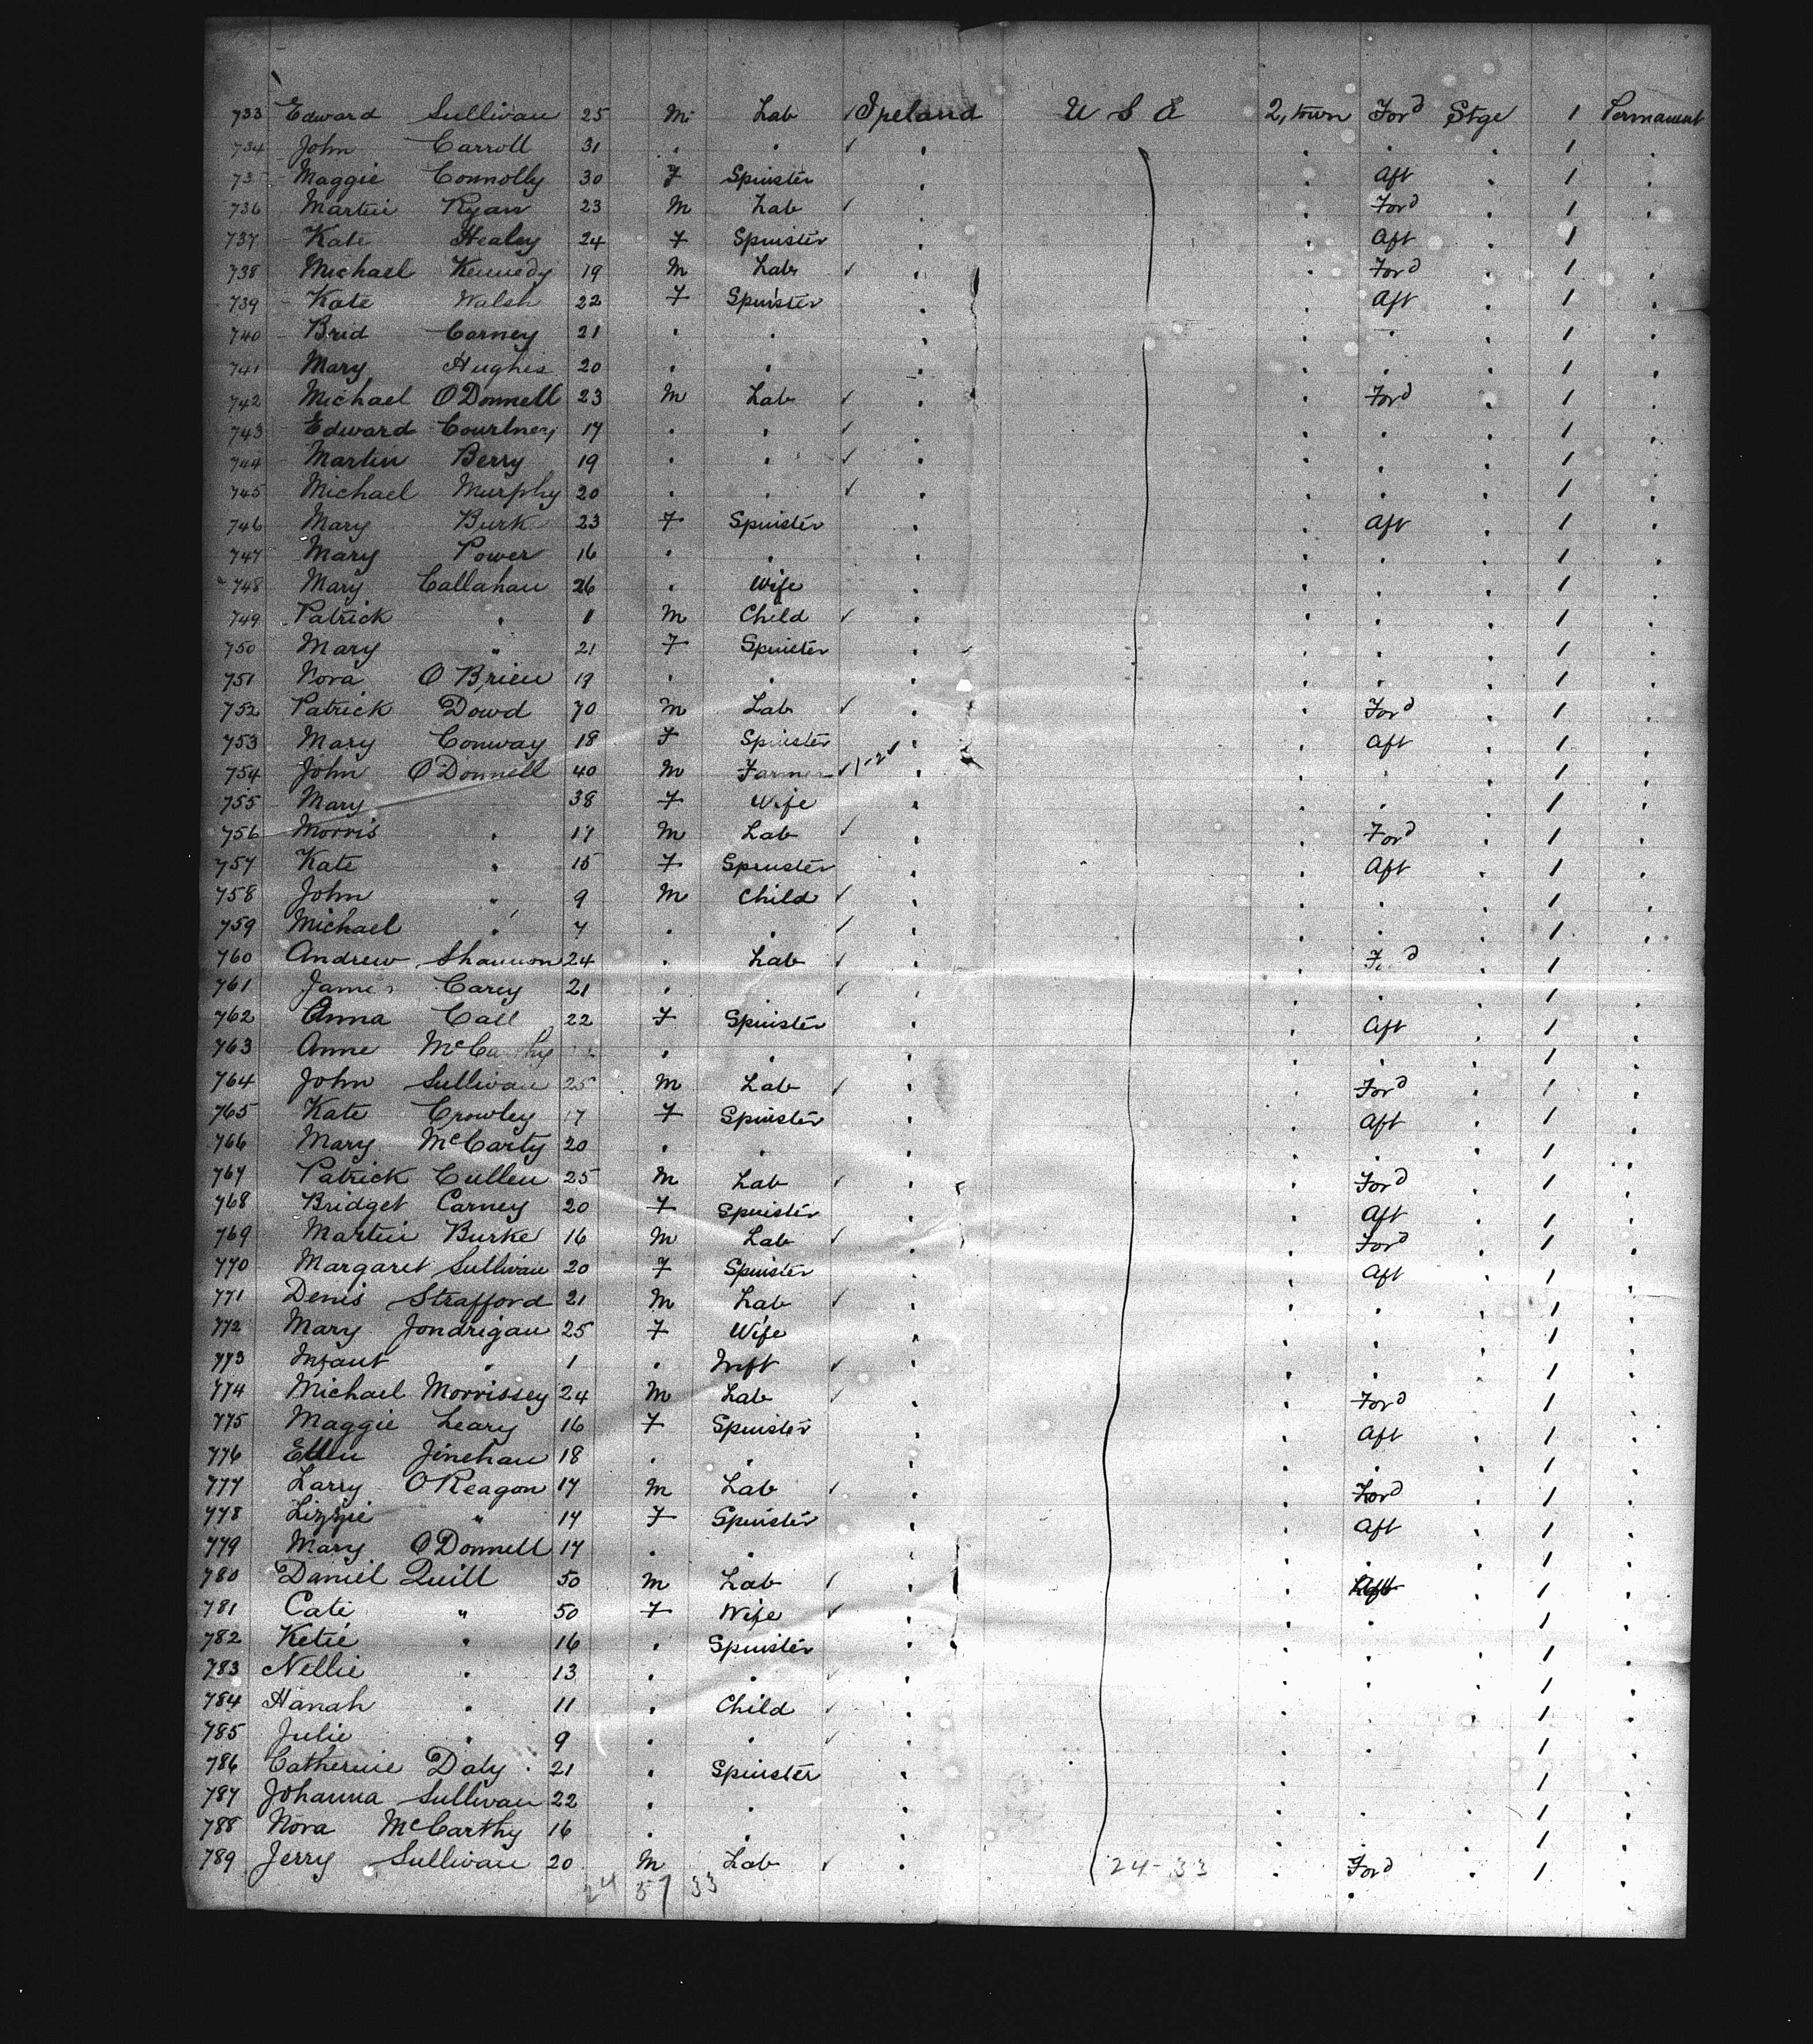 733 Edward Sullivan 25 M Lab ✓ Ireland U S A 2, town For'd Stge 1 Permanent
734 John Carroll 31 . . ✓ . . . . 1 .
73 Maggie Connolly 30 F Spinster . . Aft . 1 .
736 Martin Ryan 23 M Lab ✓ . . For'd . 1 .
737 Kate Healey 24 F Spinster . . Aft . 1 .
738 Michael Kennedy 19 M Lab ✓ . . For'd . 1 .
739 Kate Walsh 22 F Spinster . . Aft . 1 .
740 Brid Carney 21 . . . . . . 1 .
741 Mary Hughes 20 . . . . . . 1 .
742 Michael O'Donnell 23 M Lab ✓ . . For'd . 1 .
743 Edward Courtney 17 . . ✓ . . . . 1 .
744 Martin Berry 19 . . ✓ . . . . 1 .
745 Michael Murphy 20 . . ✓ . . . . 1 .
746 Mary Burk 23 F Spinster . . Aft . 1 .
747 Mary Power 16 . . . . . . 1 .
748 Mary Callahan 26 . Wife . . . . 1 .
749 Patrick " 1 M Child ✓ . . . . 1 .
750 Mary " 21 F Spinster . . . . 1 .
751 Nora O'Brien 19 . . . . . . 1 .
752 Patrick Dowd 70 M Lab ✓ . . For'd . 1 .
753 Mary Conway 18 F Spinster . . Aft . 1 .
754 John O'Donnell 40 M Farmer ✓ 1-2 ✓ . . . . 1 .
755 Mary 38 F Wife . . . . 1 .
756 Morris " 17 M Lab ✓ . . For'd . 1 .
757 Kate " 15 F Spinster . . Aft . 1 .
758 John " 9 M Child ✓ . . . . 1 .
759 Michael " 7 . . ✓ . . . . 1 .
760 Andrew Shannon 24 . Lab ✓ . . For'd . 1 .
761 James Carey 21 . . ✓ . . . . 1 .
762 Anna Call 22 F Spinster . . Aft . 1 .
763 Anne McCarthy . . . . . . 1 .
764 John Sullivan 25 M Lab ✓ . . For'd . 1 .
765 Kate Crowley 17 F Spinster . . Aft . 1 .
766 Mary McCarty 20 . . . . . . 1 .
767 Patrick Cullen 25 M Lab ✓ . . For'd . 1 .
768 Bridget Carney 20 F Spinster . . Aft . 1 .
769 Martin Burke 16 M Lab ✓ . . For'd . 1 .
770 Margaret Sullivan 20 F Spinster . . Aft . 1 .
771 Denis Strafford 21 M Lab ✓ . . . . 1 .
772 Mary Jondrigan 25 F Wife . . . . 1 .
773 Infant " 1 . Inft ✓ . . . . 1 .
774 Michael Morrissey 24 M Lab ✓ . . For'd . 1 .
775 Maggie Leary 16 F Spinster . . Aft . 1 .
776 Ellen Jinehan 18 . . . . . . 1 .
777 Larry O'Reagon 17 M Lab ✓ . . For'd . 1 .
778 Lizzie " 17 F Spinster . . Aft . 1 .
779 Mary O'Donnell 17 . . . . . . 1 .
780 Daniel Quill 50 M Lab ✓ . . Aft . 1 .
781 Cate " 50 F Wife ✓ . . . . 1 .
782 Ketie " 16 . Spinster . . . . 1 .
783 Nellie " 13 . . ✓ . . . . 1 .
784 Hanah " 11 . Child ✓ . . . . 1 .
785 Julie " 9 . . ✓ . . . . 1 .
786 Catherine Daly 21 . Spinster . . . . 1 .
787 Johanna Sullivan 22 . . . . . . 1 .
788 Nora McCarthy 16 . . . . . . 1 .
789 Jerry Sullivan 20 M Lab ✓ . 24-33 . For'd . 1 .
24 57 33